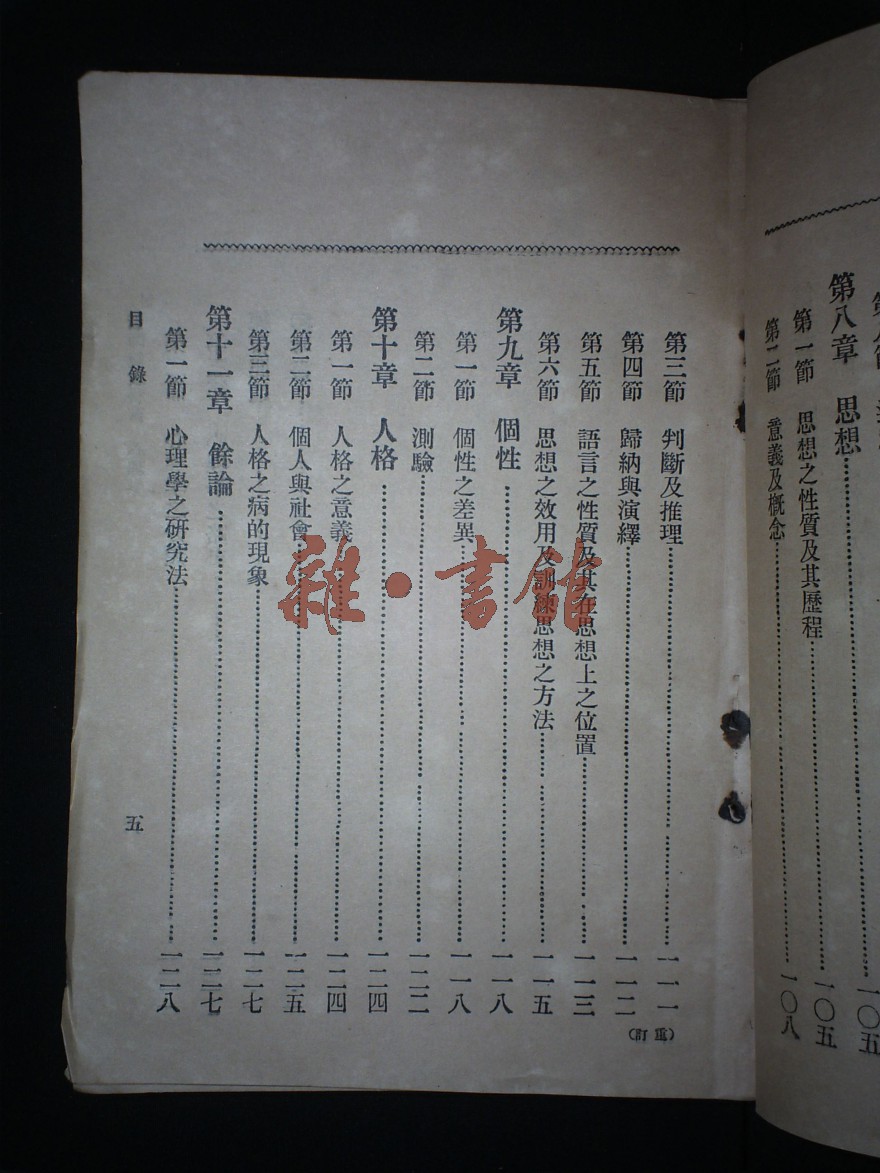 第八章 思想 一〇五
第一節 思想之性質及其歷程 一〇五
第二節 意義及概念 一〇八
第三節 判斷及推理 一一一
第四節 歸納與演繹 一一二
第五節 語言之性質及其在思想上之位置 一一三
第六節 思想之效用及訓練思想之方法 一一五
第九章 個性 一一八
第一節 個性之差異 一一八
第二節 測驗 一二二
第十章 人格 一二四
第一節 人格之意義 一二四
第二節 個人與社會 一二五
第三節 人格之病的現象 一二七
第十一章 餘論 一二七
第一節 心理學之研究法 一二八
目錄
五
(重訂)
雜·書館